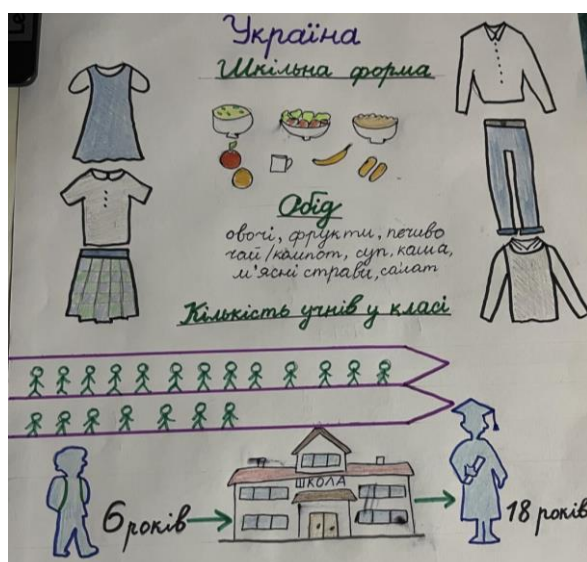 Україна
Шкільна форма
Обід
овочі, фрукти, печиво
чай/компот, суп, каша,
м'ясні страви, салат
Кількість учнів у класі
ШКОЛА
6 років
18 років